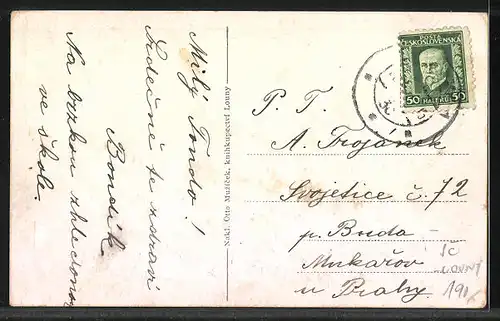 Milý Tondo!
Srdečně te zdraví
Bondík
Na brzkou shledanou
ve škole.
Nakl. Otto Mužíček, knihkupectví Louny
POŠTA
ČESKOSLOVENSKÁ
50 HALÉŘŮ 50
P. T.
A. Trojánek
Svojetice č. 72
p.
Mukařov
u Prahy